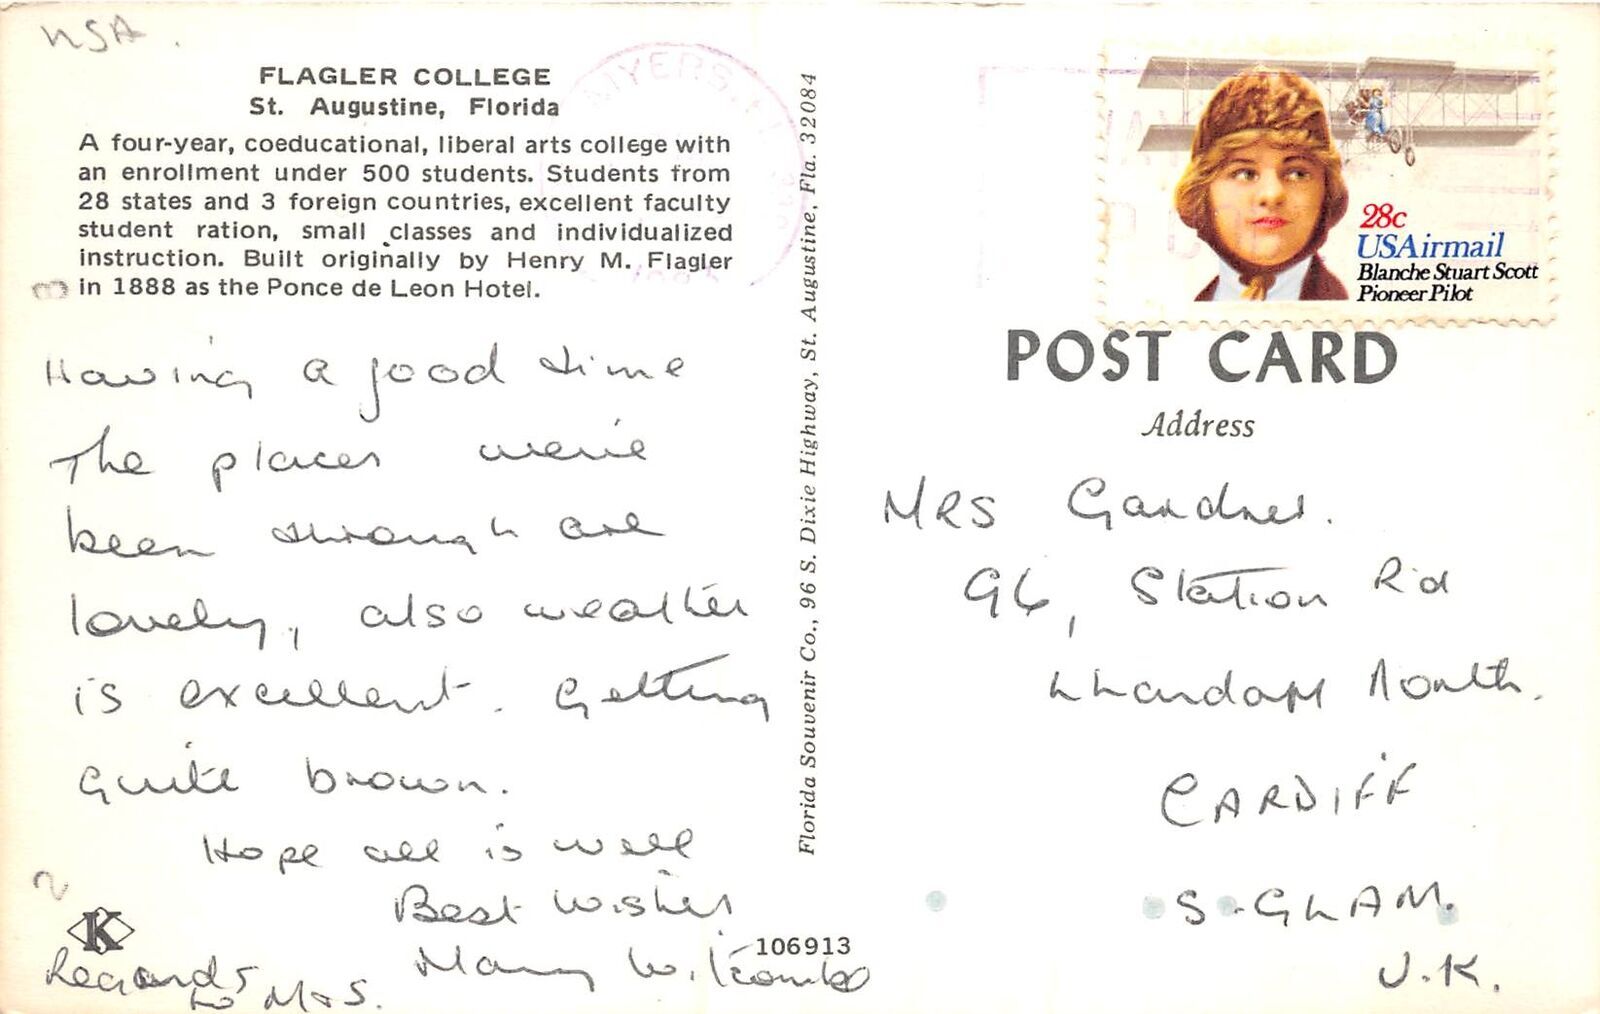 USA.
FLAGLER COLLEGE
St. Augustine, Florida
A four-year, coeducational, liberal arts college with
an enrollment under 500 students. Students from
28 states and 3 foreign countries, excellent faculty
student ration, small classes and individualized
instruction. Built originally by Henry M. Flagler
in 1888 as the Ponce de Leon Hotel.
Having a good time
The places we've
been through are
lovely, also weather
is excellent. Getting
quite brown.
Hope all is well
Best Wishes
Mary Wilcombe
Regards
to M+S.
K
106913
Florida Souvenir Co., 96 S. Dixie Highway, St. Augustine, Fla. 32084
MYERS, FL
28c
USAirmail
Blanche Stuart Scott
Pioneer Pilot
POST CARD
Address
MRS Gardner.
96, Station Rd
Llandaff North.
CARDIFF
S-GLAM.
U.K.